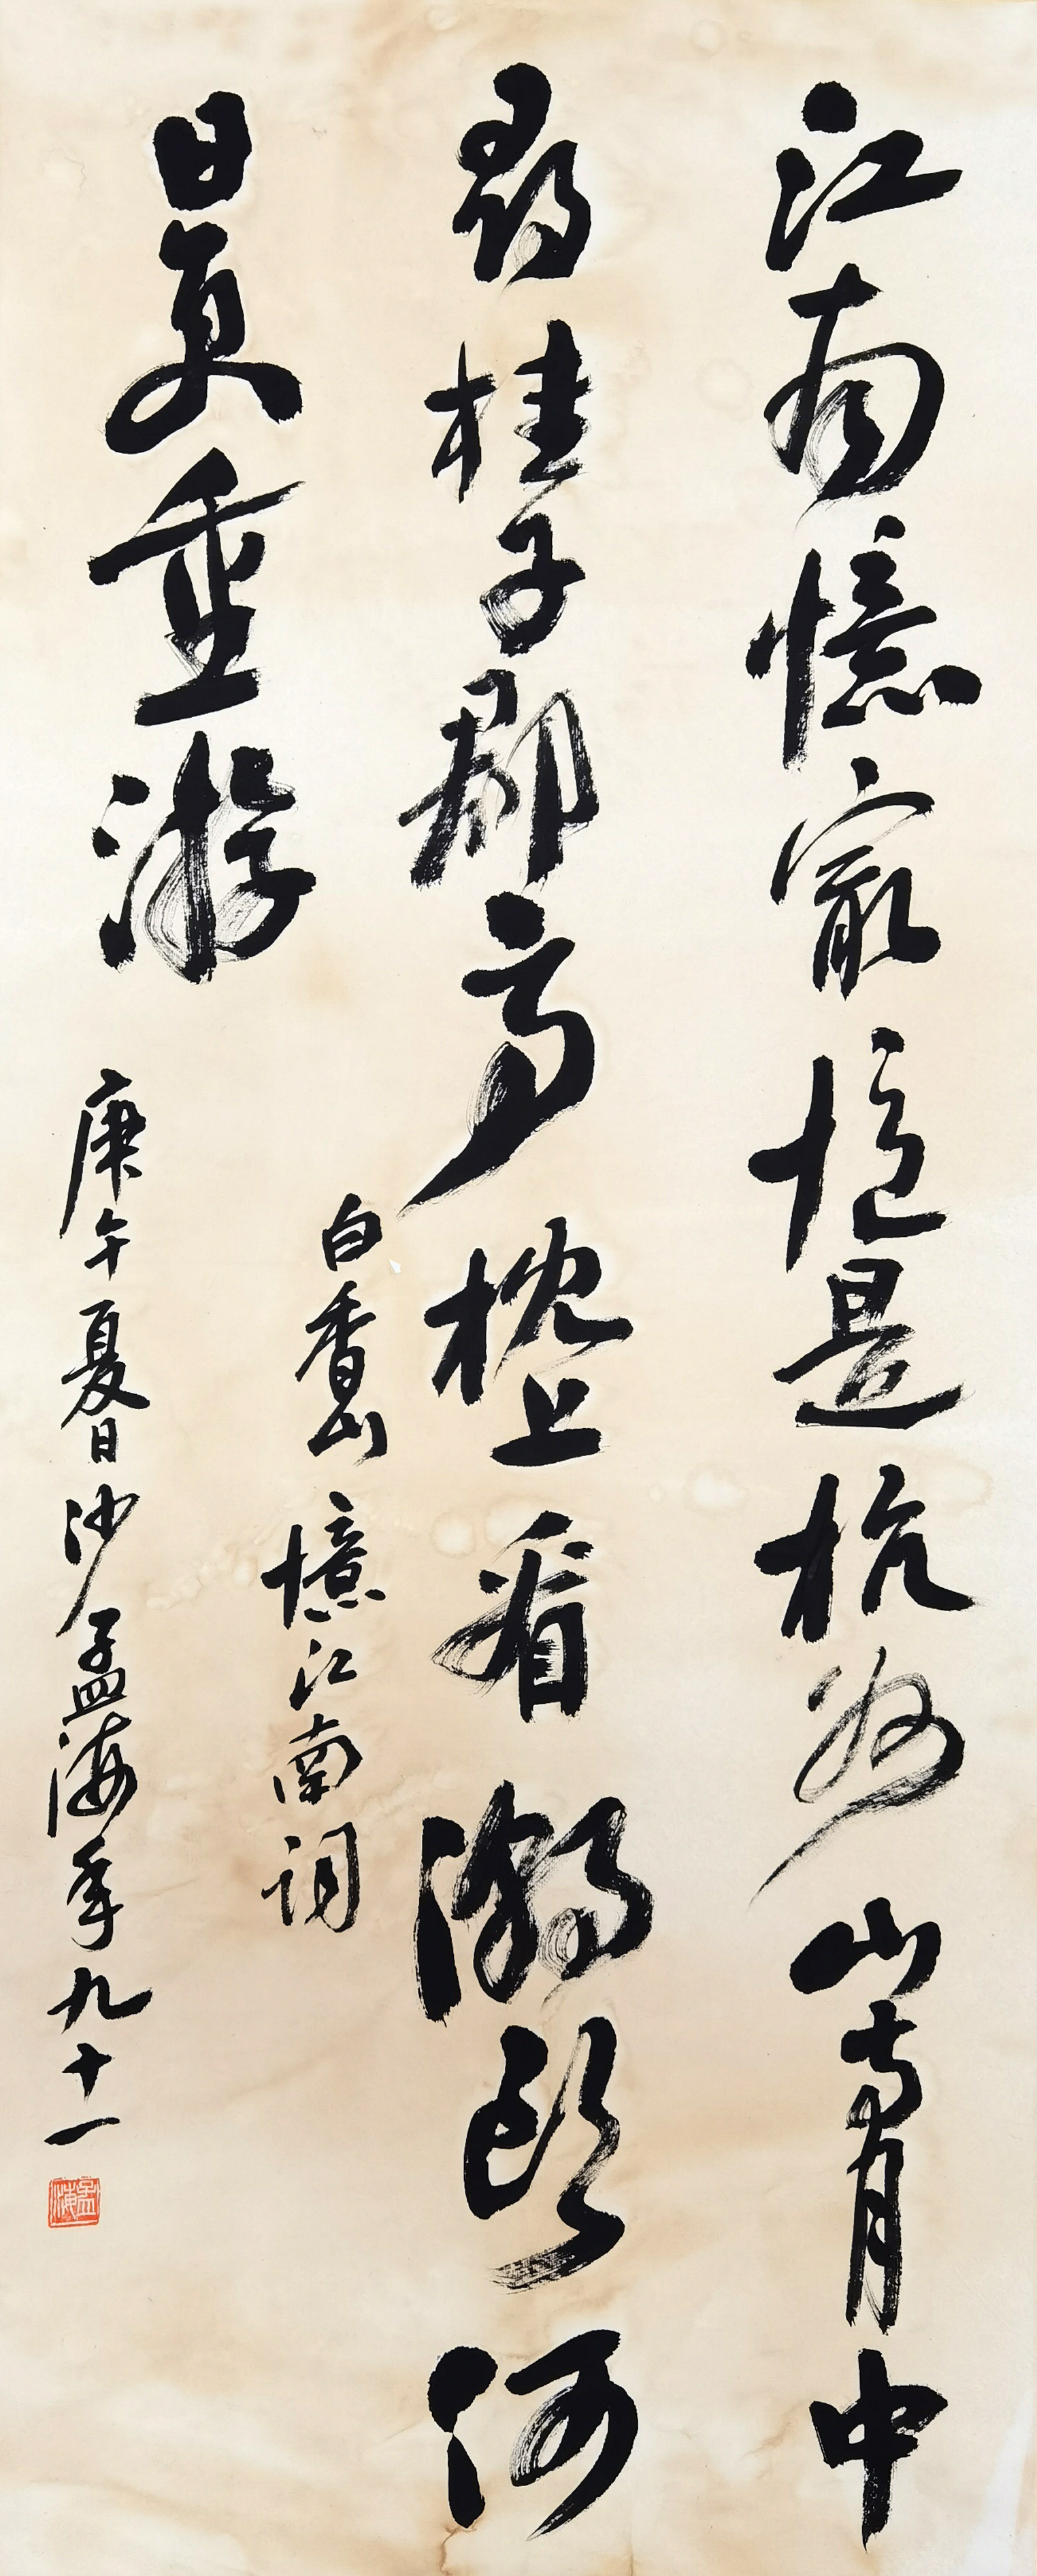 江南憶寂憶是杭州山寺月中
尋桂子郡亭枕上看潮頭何
日更重游
白香山憶江南詞
庚午夏日沙孟海年九十一
孟海